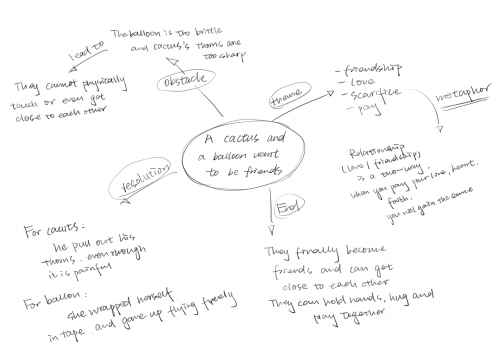 The balloon is too brittle
and cactus's thorns are
too sharp
lead to
They cannot physically
touch or even get
close to each other
obstacle
theme
- friendship
- love
- scarfive
- pay
metaphor
A cactus and
a balloon want
to be friends
Relationship
(love / friendship)
is a two-way.
when you pay your love, heart,
faith.
you will gain the same
resolution
End
For cautus:
he pull out his
thorns. even though
it is painful.
For ballon:
she wrapped herself
in tape. and gave up flying freely
They finally become
friends and can get
close to each other
They can hold hands, hug and
play together